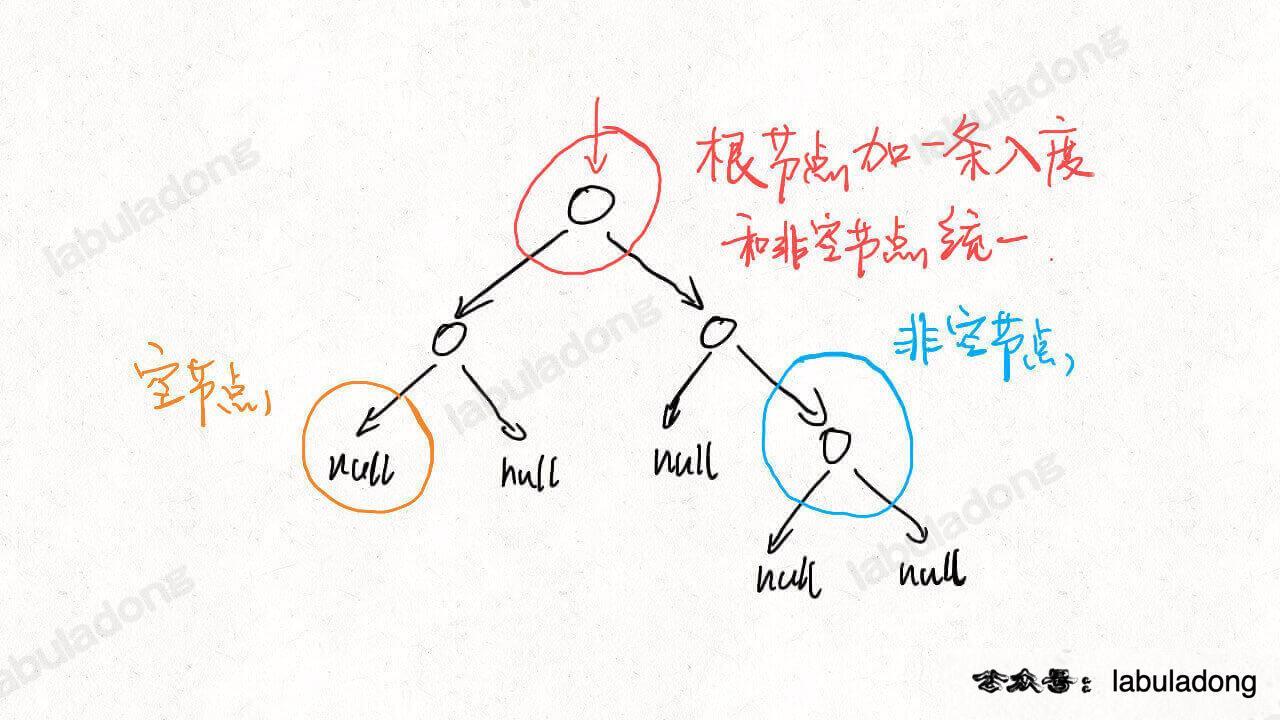 根节点加一条入度
和非空节点统一.
非空节点
空节点
null
null
null
null
null
公众号: labuladong
labuladong
labuladong
labuladong
labuladong
labuladong